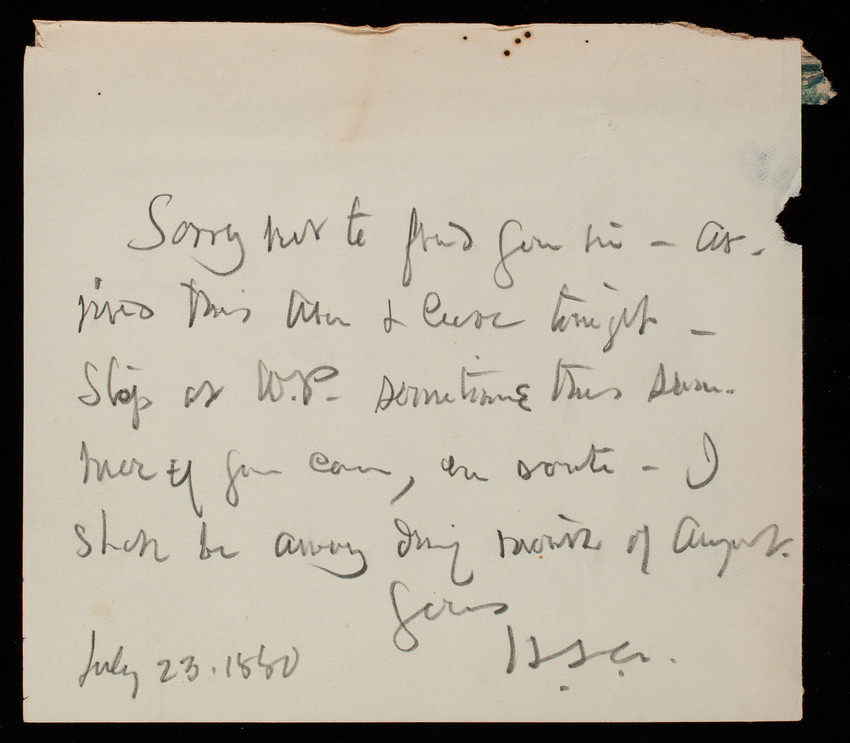 Sorry not to find you in - ar-
rived this A.M. & leave tonight -
Stop at W.P. sometime this sum-
mer if you can, en route - I
shall be away during month of August.
Yours
July 23. 1880